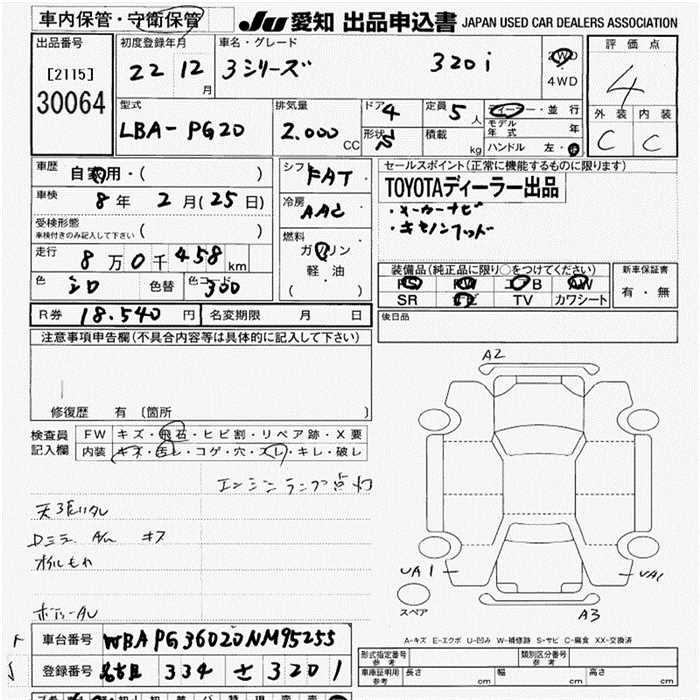 車内保管・守衛保管
JU 愛知 出品申込書 JAPAN USED CAR DEALERS ASSOCIATION
出品番号
[2115]
30064
初度登録年月
22 12月
車名・グレード
3シリーズ 320i
2WD
4WD
評価点
4
外装 内装
C C
型式
LBA-PG20
排気量
2.000 CC
ドア 4
形状
定員 5人
積載 kg
ディーラー・並行
モデル年式 年
ハンドル 左・右
車歴
自家用・( )
車検
8年 2月(25日)
受検形態
車検付きのみ記入して下さい ( )
走行
8万0千458km
色 シロ 色替 色コード 300
シフト FAT
冷房 AAC
燃料
ガソリン
軽油
( )
セールスポイント(正常に機能するものに限ります)
TOYOTAディーラー出品
・メーカーナビ
・キセノンヘッド
装備品(純正品に限り○をつけてください)
PS PW エアB AW
SR ナビ TV カワシート
新車保証書
有・無
R券 18.540円 名変期限 月 日
後日品
注意事項申告欄(不具合内容等は具体的に記入して下さい)
修復歴 有 〔箇所 〕
検査員記入欄
FW キズ・飛石・ヒビ割・リペア跡・X要
内装 キズ・汚レ・コゲ・穴・スレ・キレ・破レ
エンジンランプ点灯
天張リタレ
Dミラー A/u キズ
ボディーAU
A2
UA1
UA1
A3
スペア
A-キズ E-エクボ U-凹み W-補修跡 S-サビ C-腐食 XX-交換済
車台番号 WBAPG36020NM95255
登録番号 名古屋 334 せ 3201
形式指定番号 参考
類別区分番号 参考
車庫証明用 参考 長さ cm 幅 cm 高さ cm